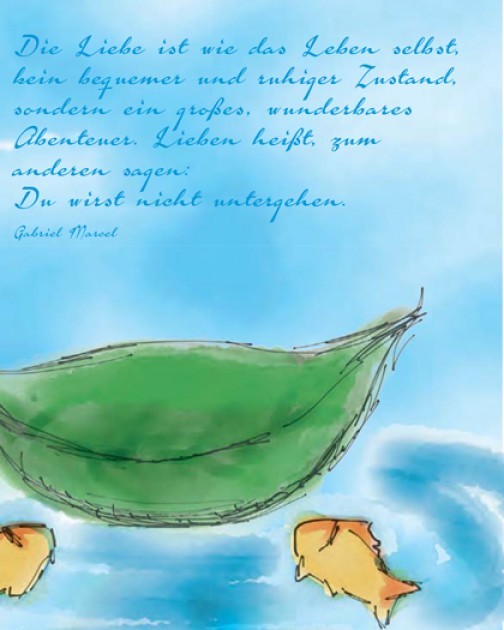 Die Liebe ist wie das Leben selbst,
kein bequemer und ruhiger Zustand,
sondern ein großes, wunderbares
Abenteuer. Lieben heißt, zum
anderen sagen:
Du wirst nicht untergehen.
Gabriel Marcel